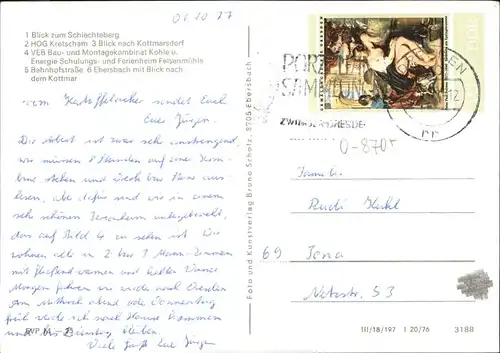 01.10.77
1 Blick zum Schlechteberg
2 HOG Kretscham 3 Blick nach Kottmarsdorf
4 VEB Bau- und Montagekombinat Kohle u.
Energie Schulungs- und Ferienheim Felsenmühle
5 Bahnhofstraße 6 Ebersbach mit Blick nach
dem Kottmar
vom Kartoffelacker sendet Euch
Euer Jürgen.
Die Arbeit ist zwar sehr anstrengend,
wir müssen 8 Stunden auf einer
stehen und Dreck
lesen, aber dafür sind wir in einem
sehr schönen Ferienheim untergebracht,
das auf Bild 4 zu sehen ist. Wir
wohnen alle in 2 bzw 3 Mann-Zimmern
mit fließend warmen und kalten Wasser
Morgen fahren wir nach Dresden
Am Mittwoch abend oder Donnerstag
früh werde ich nach Hause kommen
und bis Dienstag bleiben.
Viele Grüße Euer Jürgen
Foto und Kunstverlag Bruno Scholz, 8705 Ebersbach
DDR
12
ZWINGER DRESDEN
O-8705
Familie
Rudi
69 Jena
53
III/18/197 I 20/76 3188